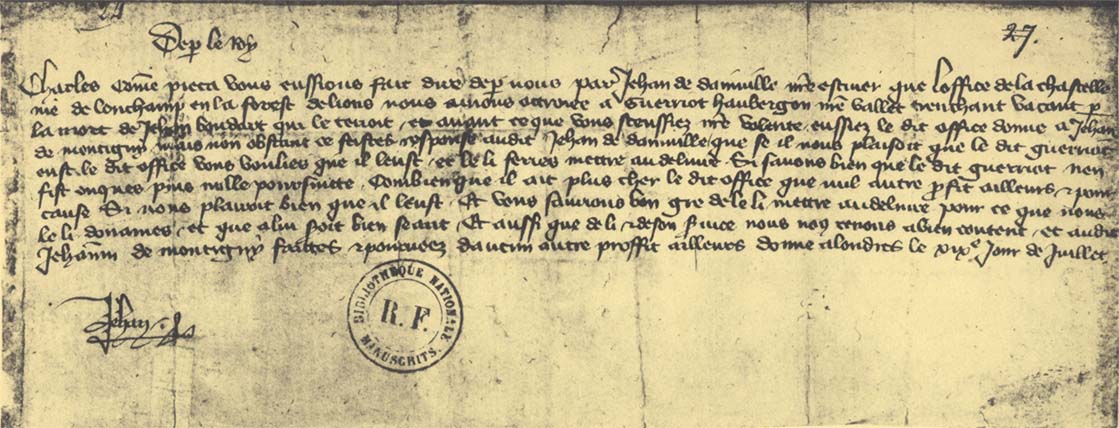 27.
Dep le Roy
Charles Cōme pieca vous eussions fait dire dep nous par Jehan de dainville nre escuier que loffice de la chastelle
nie de lonchamp en la forest de lions nous avions octroie a Guerriot haubergon nre vallet trenchant vacant p
la mort de Jehan boudart qui le tenoit et avant ce que vous sceussiez nre volente eussiez le dit office donne a Jehan
de montigny mais non obstant ce feistes response audit Jehan de dainville que se il nous plaisoit que le dit guerriot
eust le dit office vous voulies que il leust et le li feries mettre au delivre Si savons bien que le dit guerriot nen
fist onques puis nulle poursuitte Combien que il ait plus cher le dit office que nul autre pfit ailleurs et pour
cause Si nous plairoit bien que il leust Et vous saurions bon gre de le li mettre au delivre pour ce que nous
le li donames et que a lui soit bien seant Et aussi que de li et de son svice nous nos tenons a bien content et audit
Jehann de montigny faittes et pourveez daucun autre proffit ailleurs donne a londres le xixe Jour de Juillet
Jehan
BIBLIOTHÈQUE NATIONALE
R.F.
MANUSCRITS.